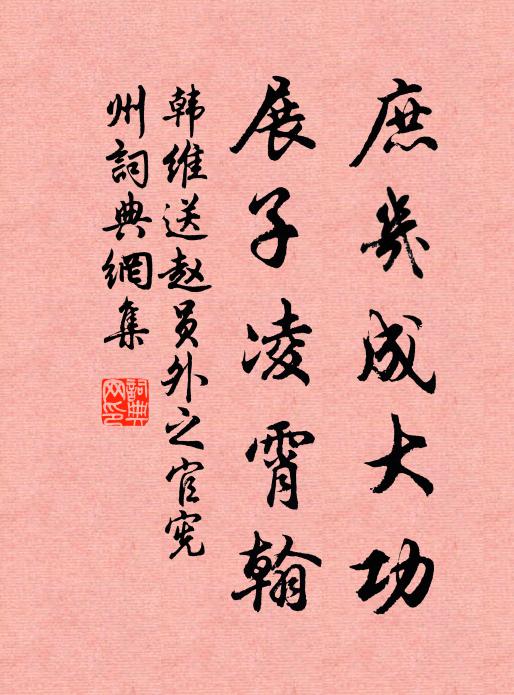 庶幾成大功
展子凌霄翰
韩維送赵員外之官兖
州詞典網集
詞典
网印